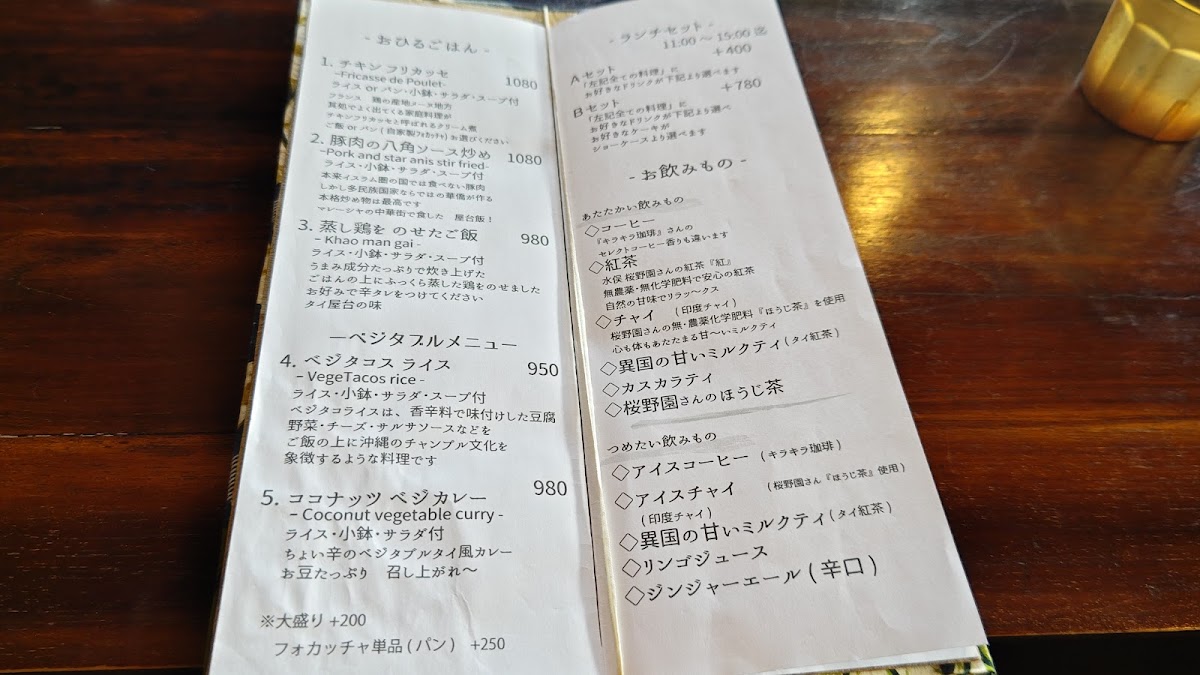 - おひるごはん -
1. チキン フリカッセ 1080
-Fricasse de Poulet-
ライス or パン・小鉢・サラダ・スープ付
フランス 鶏の産地ソーヌ地方
食卓でよく出てくる家庭料理が
チキンフリカッセと呼ばれるクリーム煮
ご飯 or パン ( 自家製フォカッチャ ) お選びください
2. 豚肉の八角ソース炒め 1080
-Pork and star anis stir fried-
ライス・小鉢・サラダ・スープ付
本来イスラム圏の国では食べない豚肉
しかし多民族国家ならではの華僑が作る
本格炒め物は最高です
マレーシャの中華街で食した 屋台飯！
3. 蒸し鶏を のせたご飯 980
- Khao man gai -
ライス・小鉢・サラダ・スープ付
うまみ成分たっぷりで炊き上げた
ごはんの上にふっくら蒸した鶏をのせました
お好みで辛タレをつけてください
タイ屋台の味
ーベジタブルメニュー
4. ベジタコス ライス 950
- VegeTacos rice -
ライス・小鉢・サラダ・スープ付
ベジタコライスは、香辛料で味付けした豆腐
野菜・チーズ・サルサソースなどを
ご飯の上に沖縄のチャンプル文化を
象徴するような料理です
5. ココナッツ ベジカレー 980
- Coconut vegetable curry -
ライス・小鉢・サラダ付
ちょい辛のベジタブルタイ風カレー
お豆たっぷり 召し上がれ～
※大盛り +200
フォカッチャ単品 ( パン ) +250
- ランチセット -
11:00 ～ 15:00 迄
A セット +400
「左記全ての料理」に
お好きなドリンクが下記より選べます
B セット +780
「左記全ての料理」に
お好きなドリンクが下記より選べ
お好きなケーキが
ショーケースより選べます
- お飲みもの -
あたたかい飲みもの
◇コーヒー
『キラキラ珈琲』さんの
セレクトコーヒー香りも違います
◇紅茶
水俣 桜野園さんの紅茶『紅』
無農薬・無化学肥料で安心の紅茶
自然の甘味でリラッ～クス
◇チャイ ( 印度チャイ )
桜野園さんの無・農薬化学肥料『ほうじ茶』を使用
心も体もあたたまる甘～いミルクティ
◇異国の甘いミルクティ ( タイ紅茶 )
◇カスカラティ
◇桜野園さんのほうじ茶
つめたい飲みもの
◇アイスコーヒー ( キラキラ珈琲 )
◇アイスチャイ ( 桜野園さん『ほうじ茶』使用 )
( 印度チャイ )
◇異国の甘いミルクティ ( タイ紅茶 )
◇リンゴジュース
◇ジンジャーエール ( 辛口 )